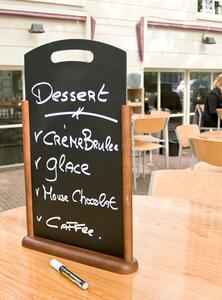 Dessert
✓ CRÈME Brulee
✓ glace
✓ Mouse Chocolat
✓ Caffee.